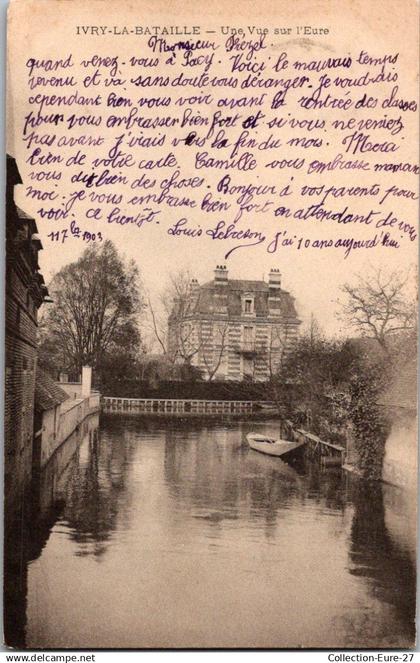 IVRY-LA-BATAILLE - Une Vue sur l'Eure
Monsieur Rezel
quand venez-vous à Pacy. Voici le mauvais temps
revenu et va sans doute vous déranger. Je voudrais
cependant bien vous voir avant la rentrée des classes
pour vous embrasser bien fort et si vous ne veniez
pas avant j'irais vers la fin du mois. Merci
bien de votre carte. Camille vous embrasse maman
vous dit bien des choses. Bonjour à vos parents pour
moi. Je vous embrasse bien fort en attendant de vous
voir. à bientôt.
Louis
1903
J'ai 10 ans aujourd'hui
Collection-Eure-27